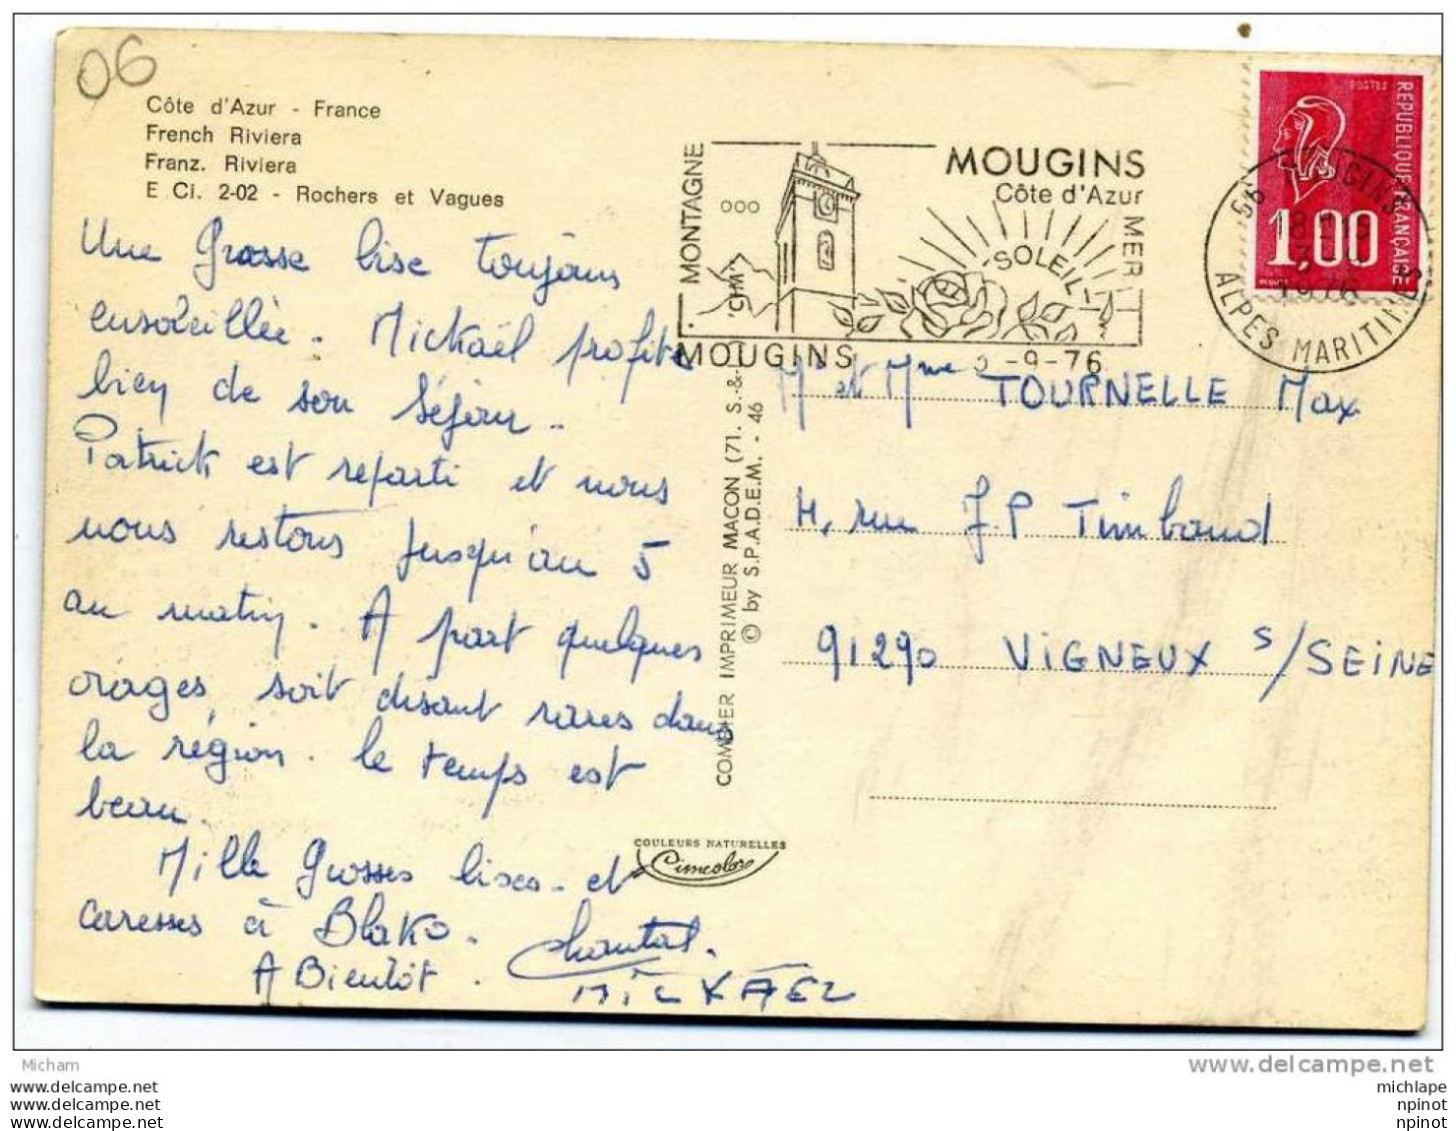 06
Côte d'Azur - France
French Riviera
Franz. Riviera
E Ci. 2-02 - Rochers et Vagues
Une Grosse bise toujours
ensoleillée. Mickaël profite
bien de son séjour.
Patrick est reparti et nous
nous restons jusqu'au 5
au matin. A part quelques
orages, soit disant rares dans
la région. le temps est
beau.
Mille Grosses bises et
caresses à Blako.
A Bientôt. Chantal.
MICKAEL
MONTAGNE
MOUGINS
Côte d'Azur
MER
SOLEIL
MOUGINS
-9-76
RÉPUBLIQUE FRANÇAISE
POSTES
1.00
MOUGINS
18H
1976
ALPES MARITIMES
COMBIER IMPRIMEUR MACON (71. S.-&-L.) "CIM"
© by S.P.A.D.E.M. - 46
Mr et Mme TOURNELLE Max
4, rue J.P Timbaud
91290 VIGNEUX S/SEINE
COULEURS NATURELLES
Cimcolor
Micham
www.delcampe.net
www.delcampe.com
www.delcampe.fr
delcampe.net
michlape
npinot
npinot